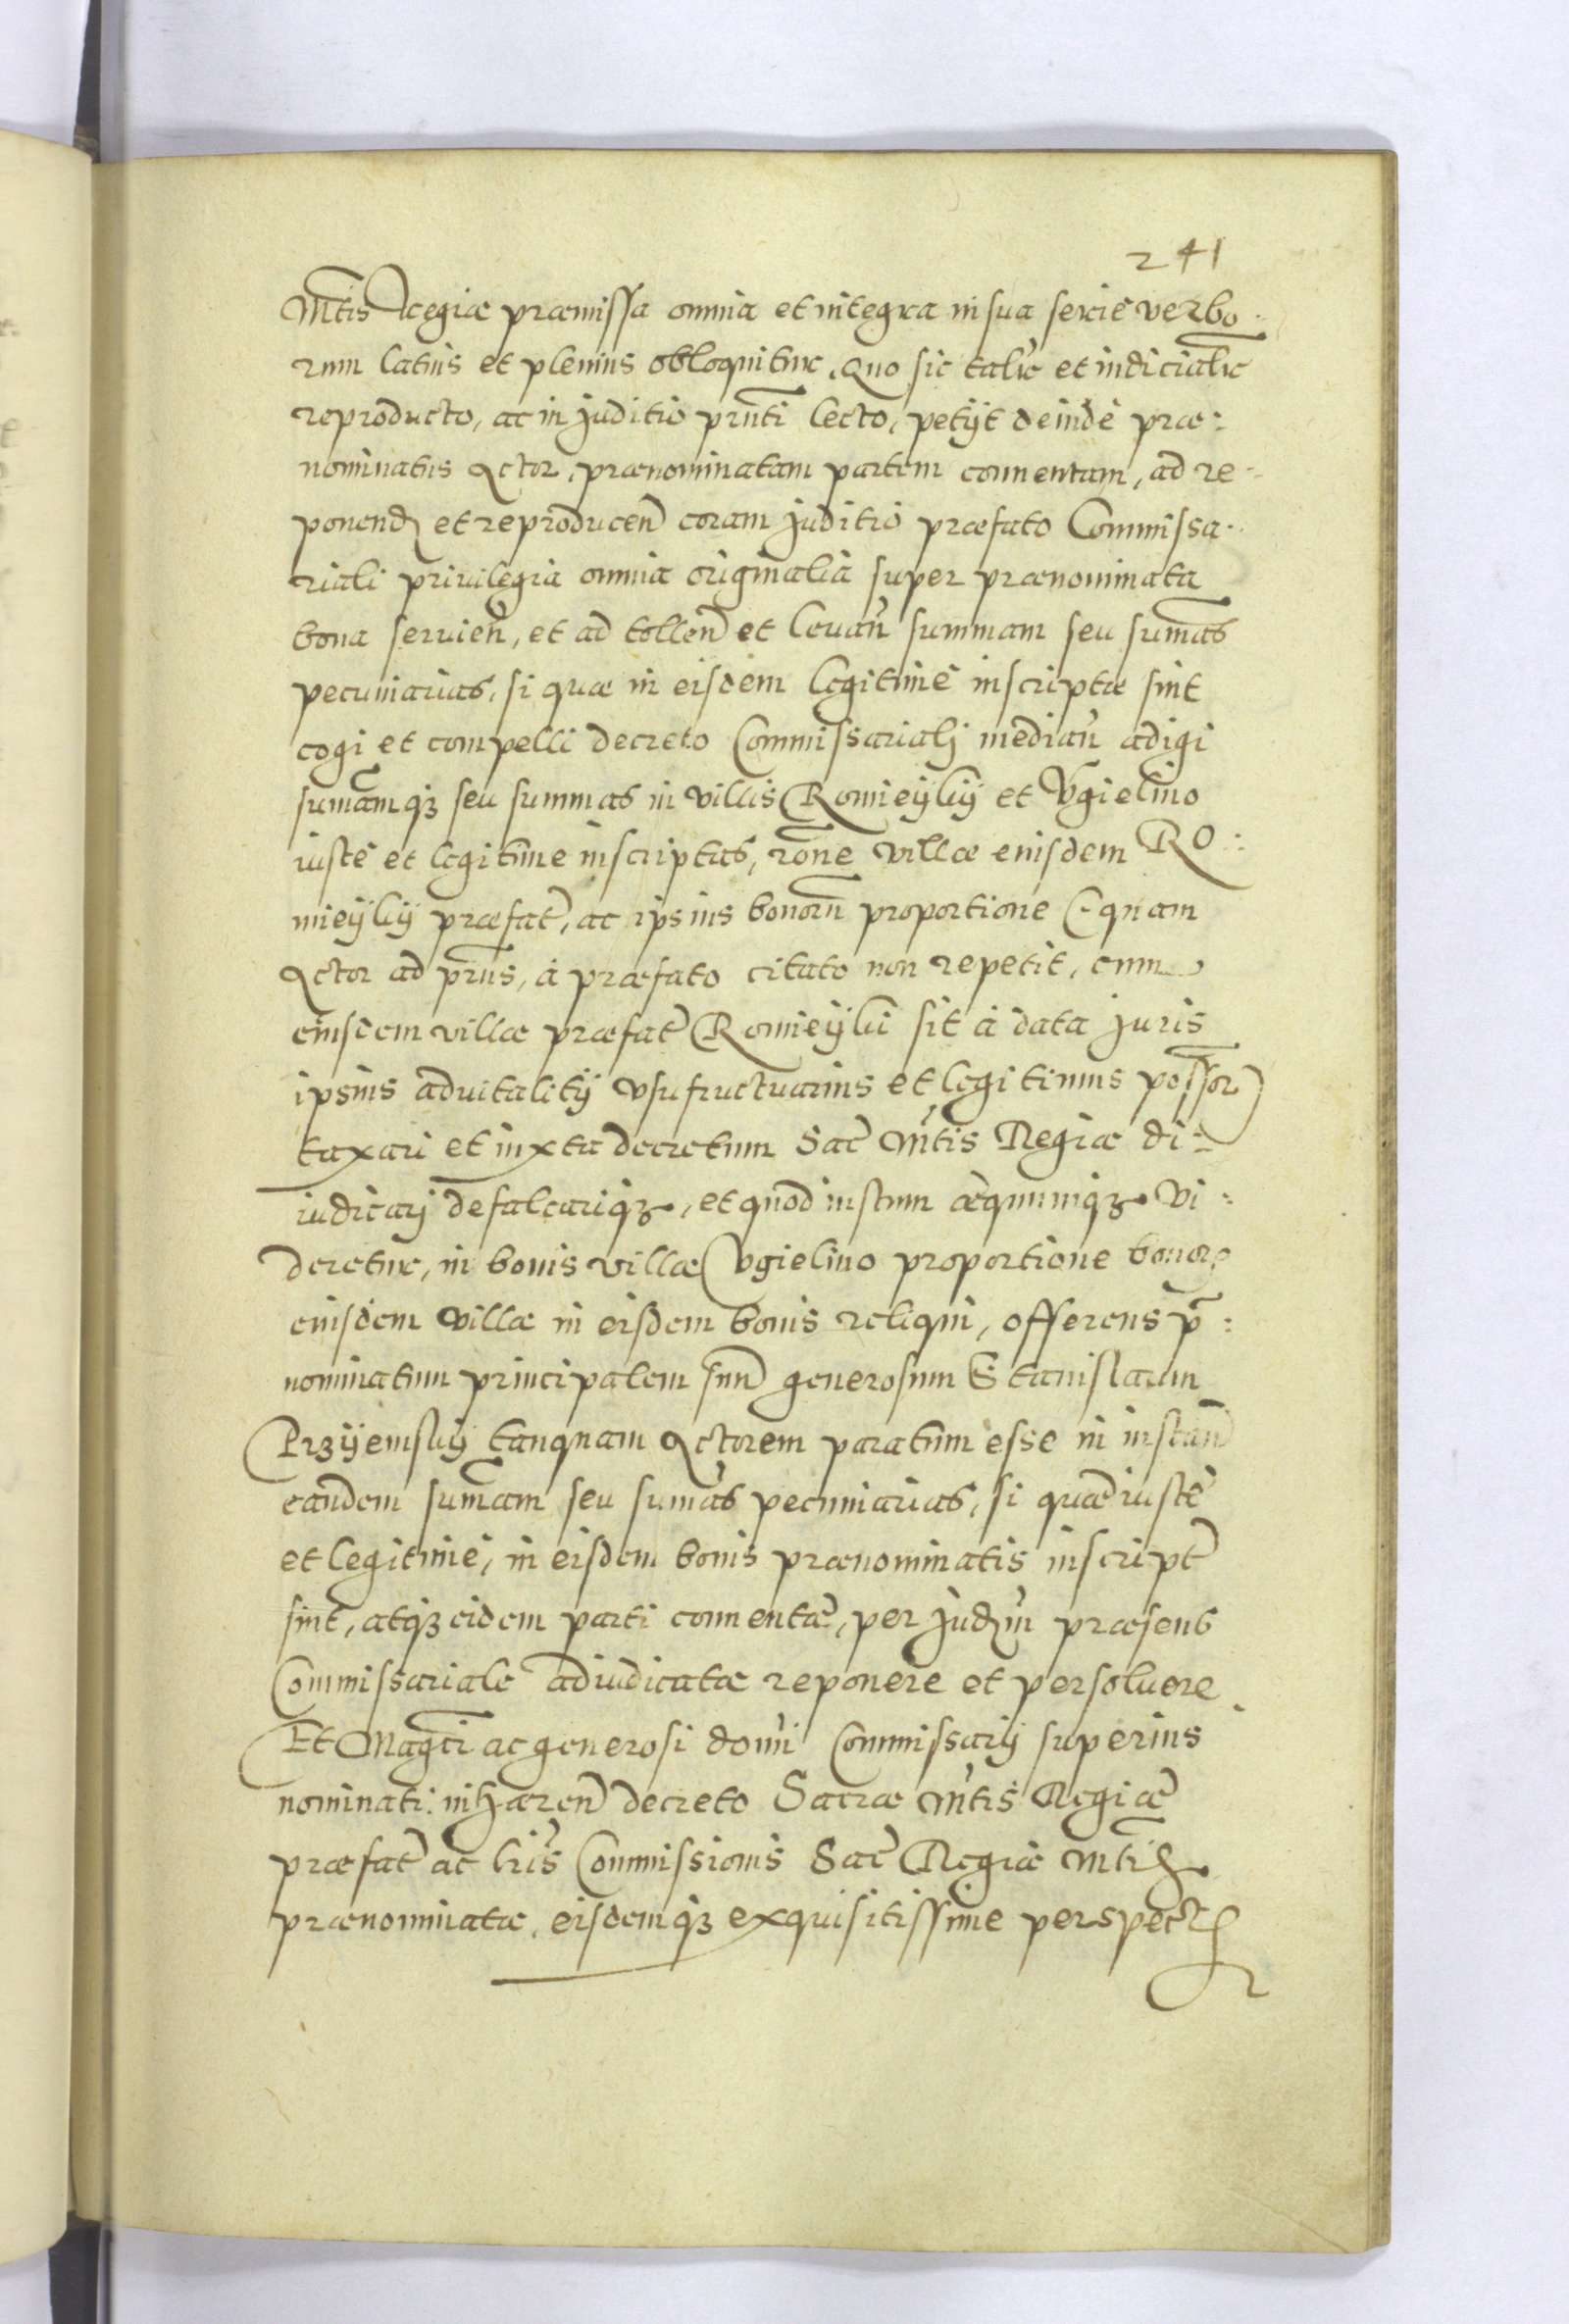 241
Mtis Regiæ præmissa omnia et integra in sua serie verbo:
rum latius et plenius obloquitur. Quo sic talr et iudicialr
reproducto, ac in juditio prnti lecto, petijt deinde præ:
nominatus Actor, prænominatam partem conuentam, ad re-
ponend et reproducen coram juditio præfato Commissa-
riali priuilegia omnia originalia super prænominata
bona seruien, et ad tollen et leuan summam seu sumas
pecuniarias, si quæ in eisdem legitimè inscriptæ sint
cogi et compelli decreto Commissarialj median adigi
sumamq3 seu summas in villis Romieÿkÿ et Vgielino
iustè et legitime inscriptas, rone villæ eiusdem Ro:
mieÿkÿ præfat, ac ipsius bonoru proportione (quam
Actor ad prns, à præfato citato non repetit, cum
eiusdem villæ præfat Romieÿki sit à data juris
ipsius aduitalitÿ vsufructuarius et legitimus possor)
taxari et iuxta decretum Sac Mtis Regiæ di:
iudicarj defalcariq3, et quod iustum æquumq3 vi:
deretur, in bonis villæ Vgielino proportione bonor
eiusdem villæ in eisdem bonis reliqui, offerens p:
nominatum principalem suu generosum Stanislaum
Przÿemskÿ tanquam Actorem paratum esse in instan
eandem sumam seu sumas pecuniarias, si quæ iustè
et legitimè, in eisdem bonis prænominatis inscript
sint, atq3 eidem parti conuentæ, per judm præsens
Commissariale adiudicatæ reponere et persoluere.
Et Magci ac generosi domi Commissarij superius
nominati inhæren decreto Sacræ Mtis Regiæ
præfat ac lris Commissionis Sac Regiæ Mtis
prænominatæ, eisdemq3 exquisitissime perspectis